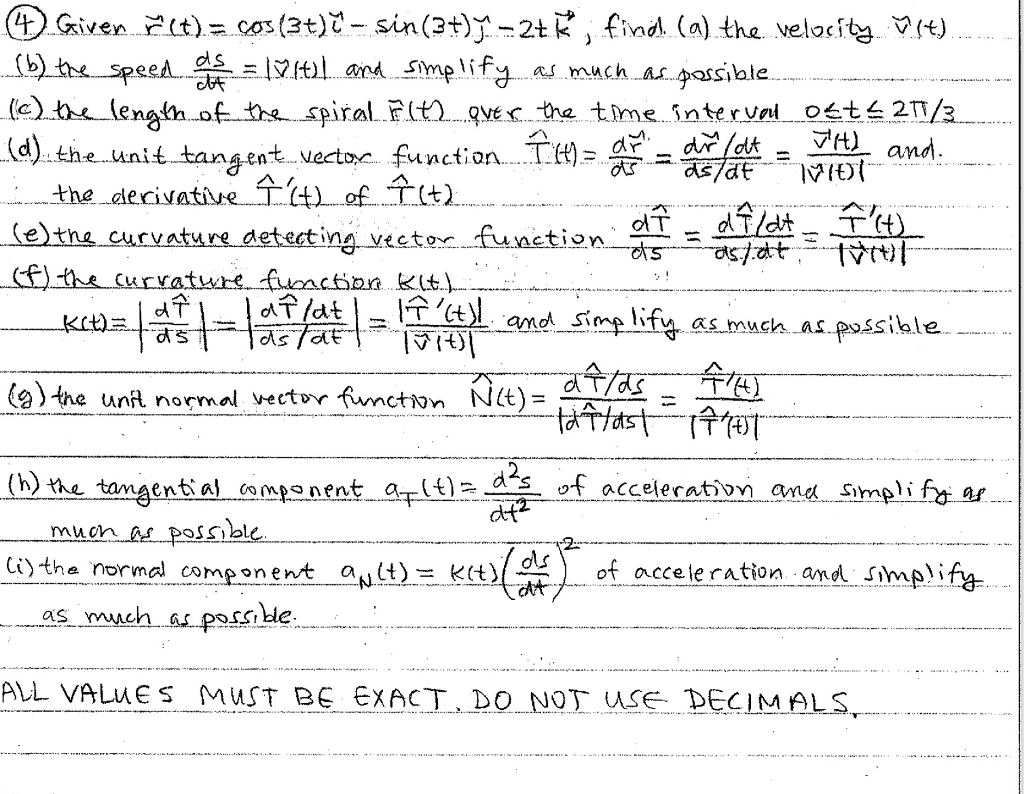 ④ Given r⃗(t) = cos(3t)i⃗ − sin(3t)j⃗ − 2t k⃗, find (a) the velocity v⃗(t)
(b) the speed ds/dt = |v⃗(t)| and simplify as much as possible
(c) the length of the spiral r⃗(t) over the time interval 0≤t≤2π/3
(d) the unit tangent vector function T̂(t) = dr⃗/ds = (dr⃗/dt)/(ds/dt) = v⃗(t)/|v⃗(t)| and
the derivative T̂'(t) of T̂(t)
(e) the curvature detecting vector function dT̂/ds = (dT̂/dt)/(ds/dt) = T̂'(t)/|v⃗(t)|
(f) the curvature function K(t)
K(t) = |dT̂/ds| = |(dT̂/dt)/(ds/dt)| = |T̂'(t)|/|v⃗(t)| and simplify as much as possible
(g) the unit normal vector function N̂(t) = (dT̂/ds)/|dT̂/ds| = T̂'(t)/|T̂'(t)|
(h) the tangential component a_T(t) = d²s/dt² of acceleration and simplify as
much as possible.
(i) the normal component a_N(t) = K(t)(ds/dt)² of acceleration and simplify
as much as possible.
ALL VALUES MUST BE EXACT. DO NOT USE DECIMALS.